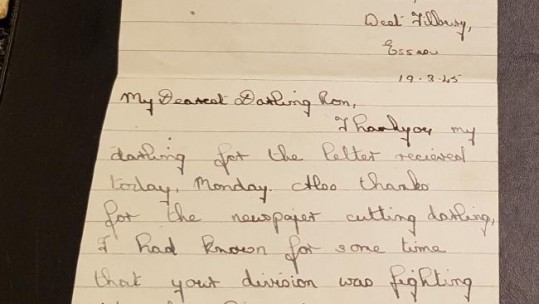 West Tilbury,
Essex
19-3-45
My Dearest Darling Ron,
Thankyou my
darling for the letter recieved
today, Monday. Also thanks
for the newspaper cutting darling,
I had known for some time
that your division was fighting